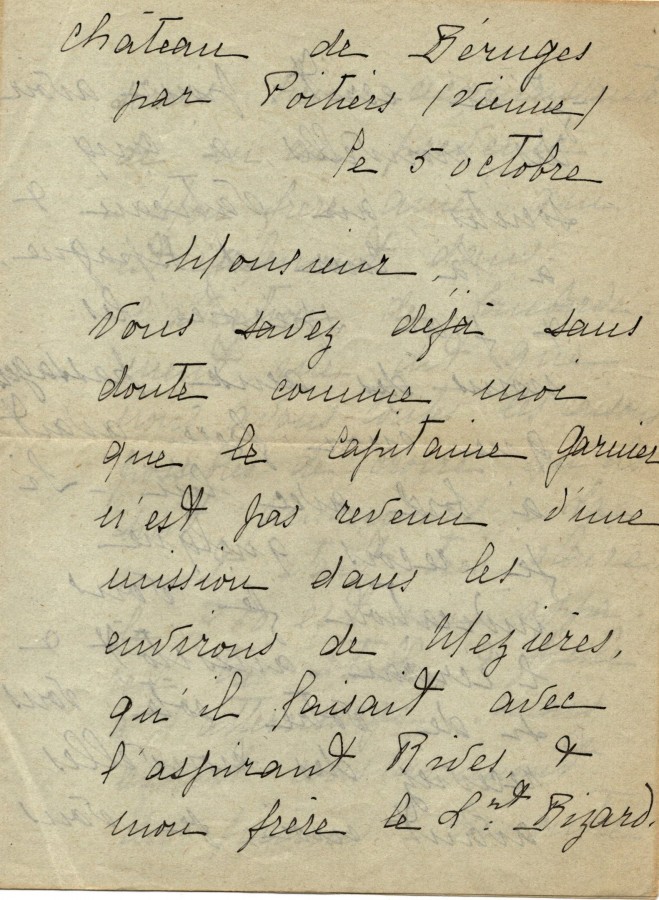 Château de Béruges
par Poitiers (Vienne)
le 5 octobre
Monsieur,
Vous savez déjà sans
doute comme moi
que le Capitaine Garnier
n'est pas revenu d'une
mission dans les
environs de Mezières,
qu'il faisait avec
l'aspirant Rives, &
mon frère le L.nt Bizard.